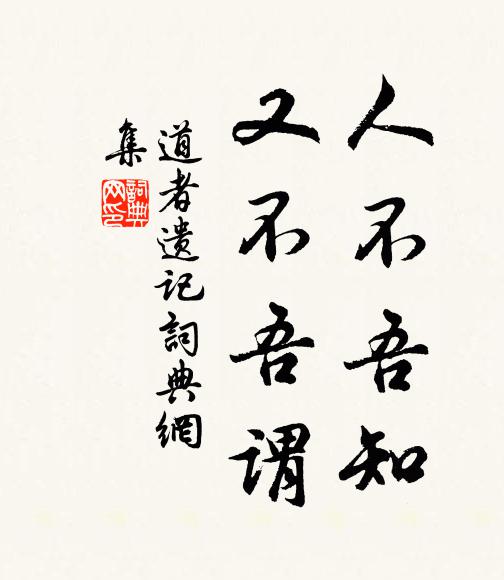 人不吾知
又不吾谓
道者遗记詞典網
集
詞典
网印